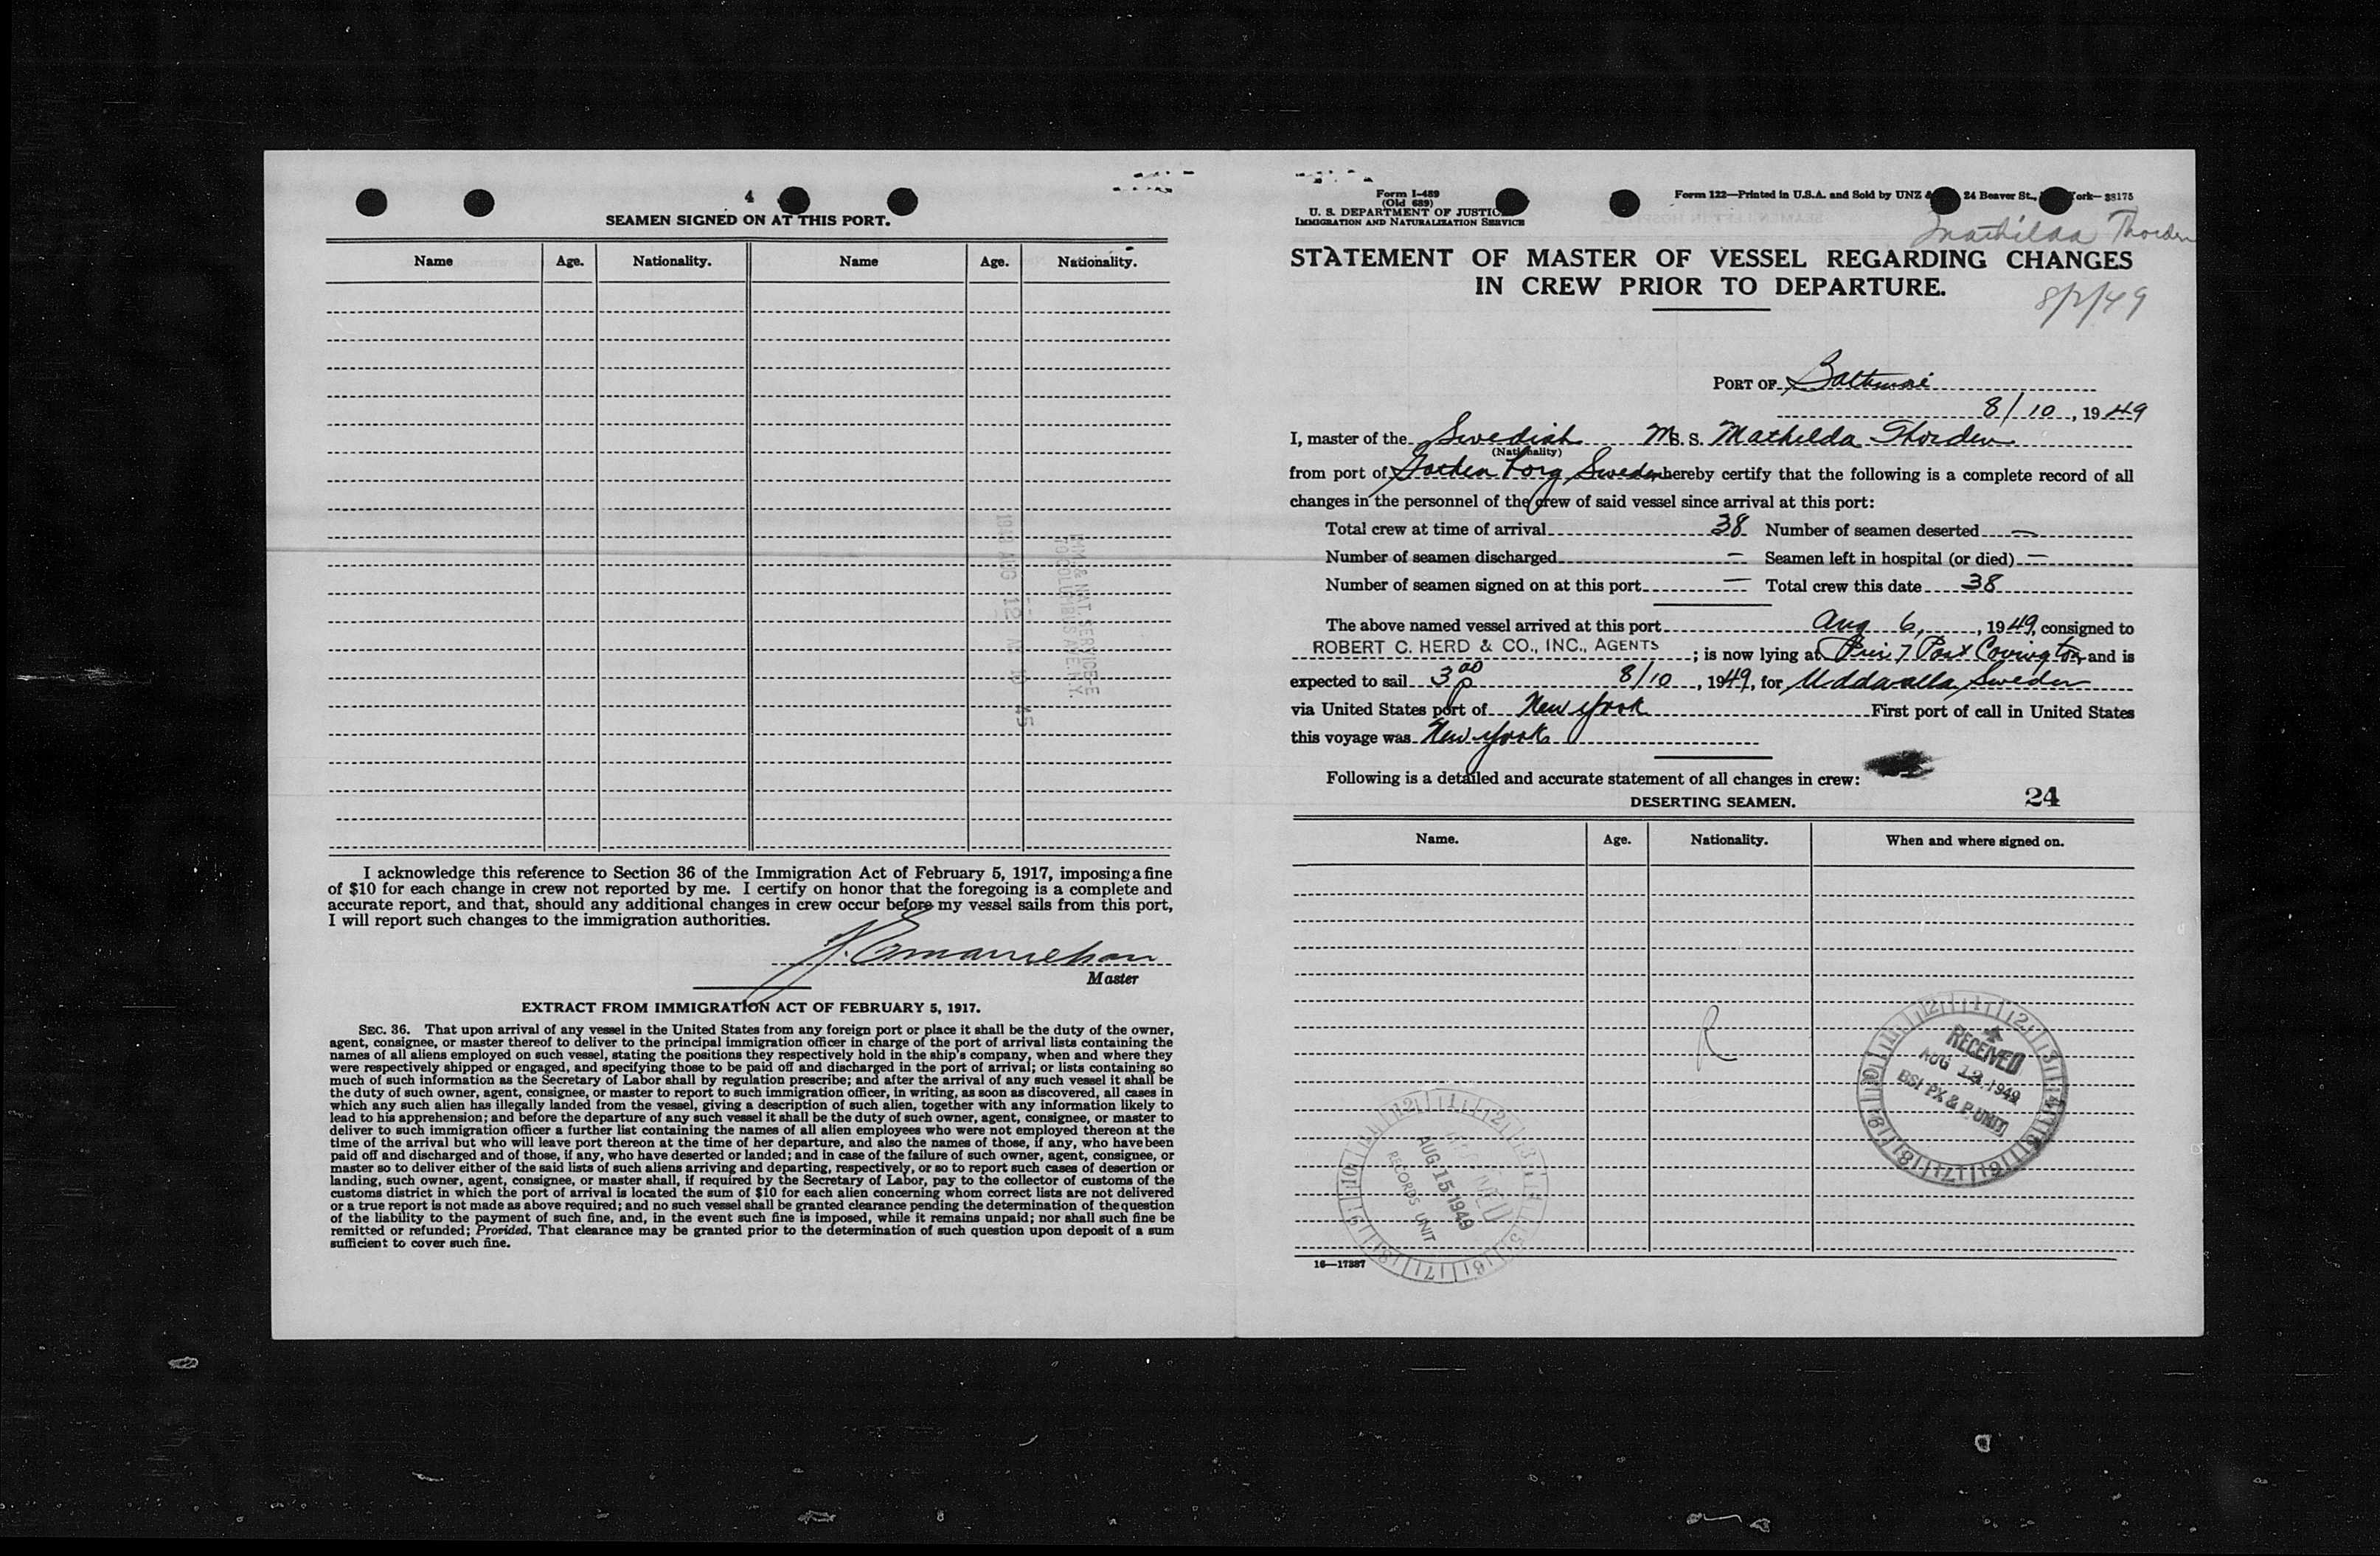 4
SEAMEN SIGNED ON AT THIS PORT.
Name Age. Nationality. Name Age. Nationality.
IMM. & NAT. SERVICE-E
70 COLUMBUS AVE. N.Y.
AUG 12
I acknowledge this reference to Section 36 of the Immigration Act of February 5, 1917, imposing a fine
of $10 for each change in crew not reported by me. I certify on honor that the foregoing is a complete and
accurate report, and that, should any additional changes in crew occur before my vessel sails from this port,
I will report such changes to the immigration authorities.
Master
EXTRACT FROM IMMIGRATION ACT OF FEBRUARY 5, 1917.
SEC. 36. That upon arrival of any vessel in the United States from any foreign port or place it shall be the duty of the owner,
agent, consignee, or master thereof to deliver to the principal immigration officer in charge of the port of arrival lists containing the
names of all aliens employed on such vessel, stating the positions they respectively hold in the ship's company, when and where they
were respectively shipped or engaged, and specifying those to be paid off and discharged in the port of arrival; or lists containing so
much of such information as the Secretary of Labor shall by regulation prescribe; and after the arrival of any such vessel it shall be
the duty of such owner, agent, consignee, or master to report to such immigration officer, in writing, as soon as discovered, all cases in
which any such alien has illegally landed from the vessel, giving a description of such alien, together with any information likely to
lead to his apprehension; and before the departure of any such vessel it shall be the duty of such owner, agent, consignee, or master to
deliver to such immigration officer a further list containing the names of all alien employees who were not employed thereon at the
time of the arrival but who will leave port thereon at the time of her departure, and also the names of those, if any, who have been
paid off and discharged and of those, if any, who have deserted or landed; and in case of the failure of such owner, agent, consignee, or
master so to deliver either of the said lists of such aliens arriving and departing, respectively, or so to report such cases of desertion or
landing, such owner, agent, consignee, or master shall, if required by the Secretary of Labor, pay to the collector of customs of the
customs district in which the port of arrival is located the sum of $10 for each alien concerning whom correct lists are not delivered
or a true report is not made as above required; and no such vessel shall be granted clearance pending the determination of the question
of the liability to the payment of such fine, and, in the event such fine is imposed, while it remains unpaid; nor shall such fine be
remitted or refunded; Provided, That clearance may be granted prior to the determination of such question upon deposit of a sum
sufficient to cover such fine.
Form I-489
(Old 689)
U. S. DEPARTMENT OF JUSTICE
IMMIGRATION AND NATURALIZATION SERVICE
Form 122—Printed in U.S.A. and Sold by UNZ & 24 Beaver St., ork—38175
Mathilda Thorden
STATEMENT OF MASTER OF VESSEL REGARDING CHANGES
IN CREW PRIOR TO DEPARTURE.
8/2/49
PORT OF Baltimore
8/10, 1949
I, master of the Swedish M. S. Mathilda Thorden
(Nationality)
from port of Gothenborg, Sweden hereby certify that the following is a complete record of all
changes in the personnel of the crew of said vessel since arrival at this port:
Total crew at time of arrival 38 Number of seamen deserted —
Number of seamen discharged — Seamen left in hospital (or died) —
Number of seamen signed on at this port — Total crew this date 38
The above named vessel arrived at this port Aug 6, , 1949, consigned to
ROBERT C. HERD & CO., INC., AGENTS ; is now lying at Pier 7 Port Covington and is
expected to sail 3 00 p 8/10, 1949, for Uddevalla, Sweden
via United States port of New York First port of call in United States
this voyage was New York
Following is a detailed and accurate statement of all changes in crew:
DESERTING SEAMEN. 24
Name. Age. Nationality. When and where signed on.
R
RECEIVED
AUG 1949
BSI PX & P UNIT
AUG 15 1949
RECORDS UNIT
16—17387